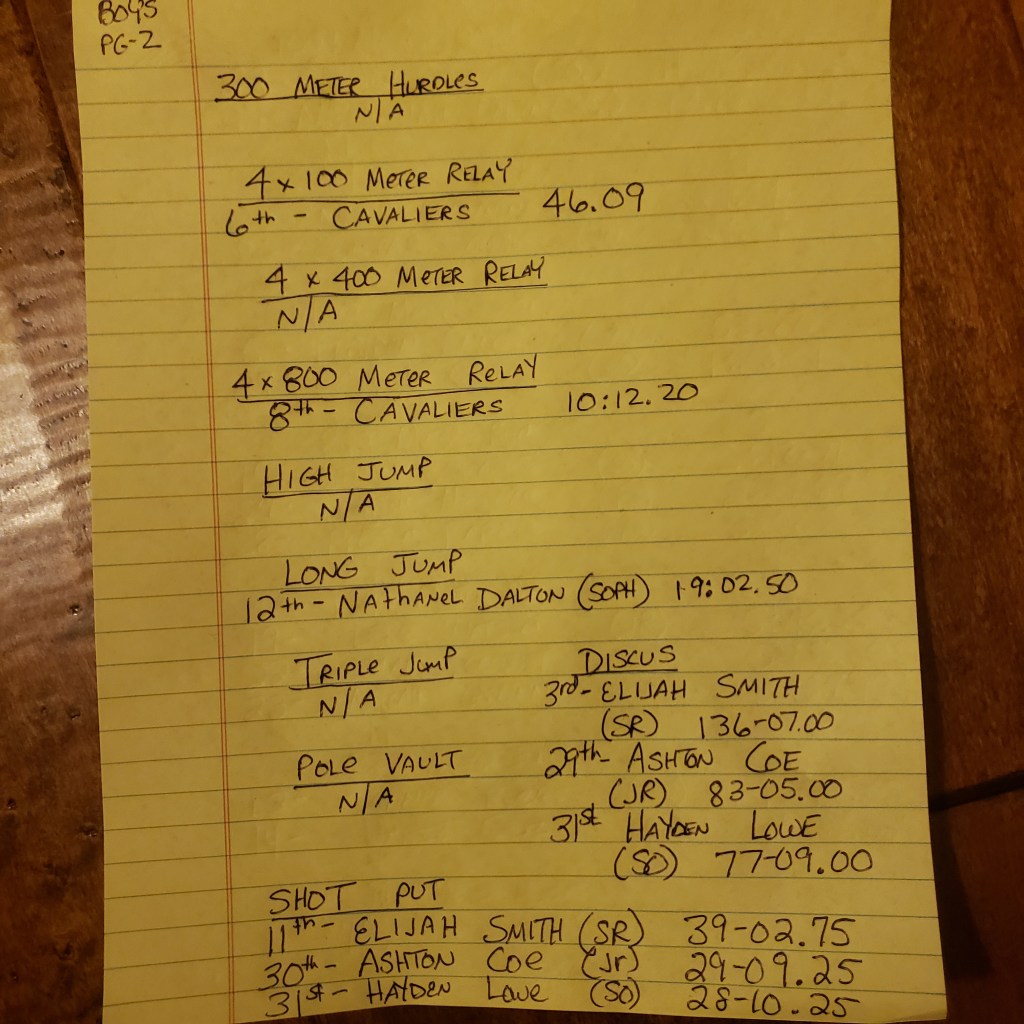 BOYS
PG-2
300 METER HURDLES
N/A
4 x 100 METER RELAY
6th - CAVALIERS 46.09
4 x 400 METER RELAY
N/A
4 x 800 METER RELAY
8th - CAVALIERS 10:12.20
HIGH JUMP
N/A
LONG JUMP
12th - NATHANEL DALTON (SOPH) 19:02.50
TRIPLE JUMP
N/A
POLE VAULT
N/A
DISCUS
3rd - ELIJAH SMITH
(SR) 136-07.00
29th - ASHTON COE
(JR) 83-05.00
31st HAYDEN LOWE
(SO) 77-09.00
SHOT PUT
11th - ELIJAH SMITH (SR) 39-02.75
30th - ASHTON COE (Jr) 29-09.25
31st - HAYDEN LOWE (SO) 28-10.25